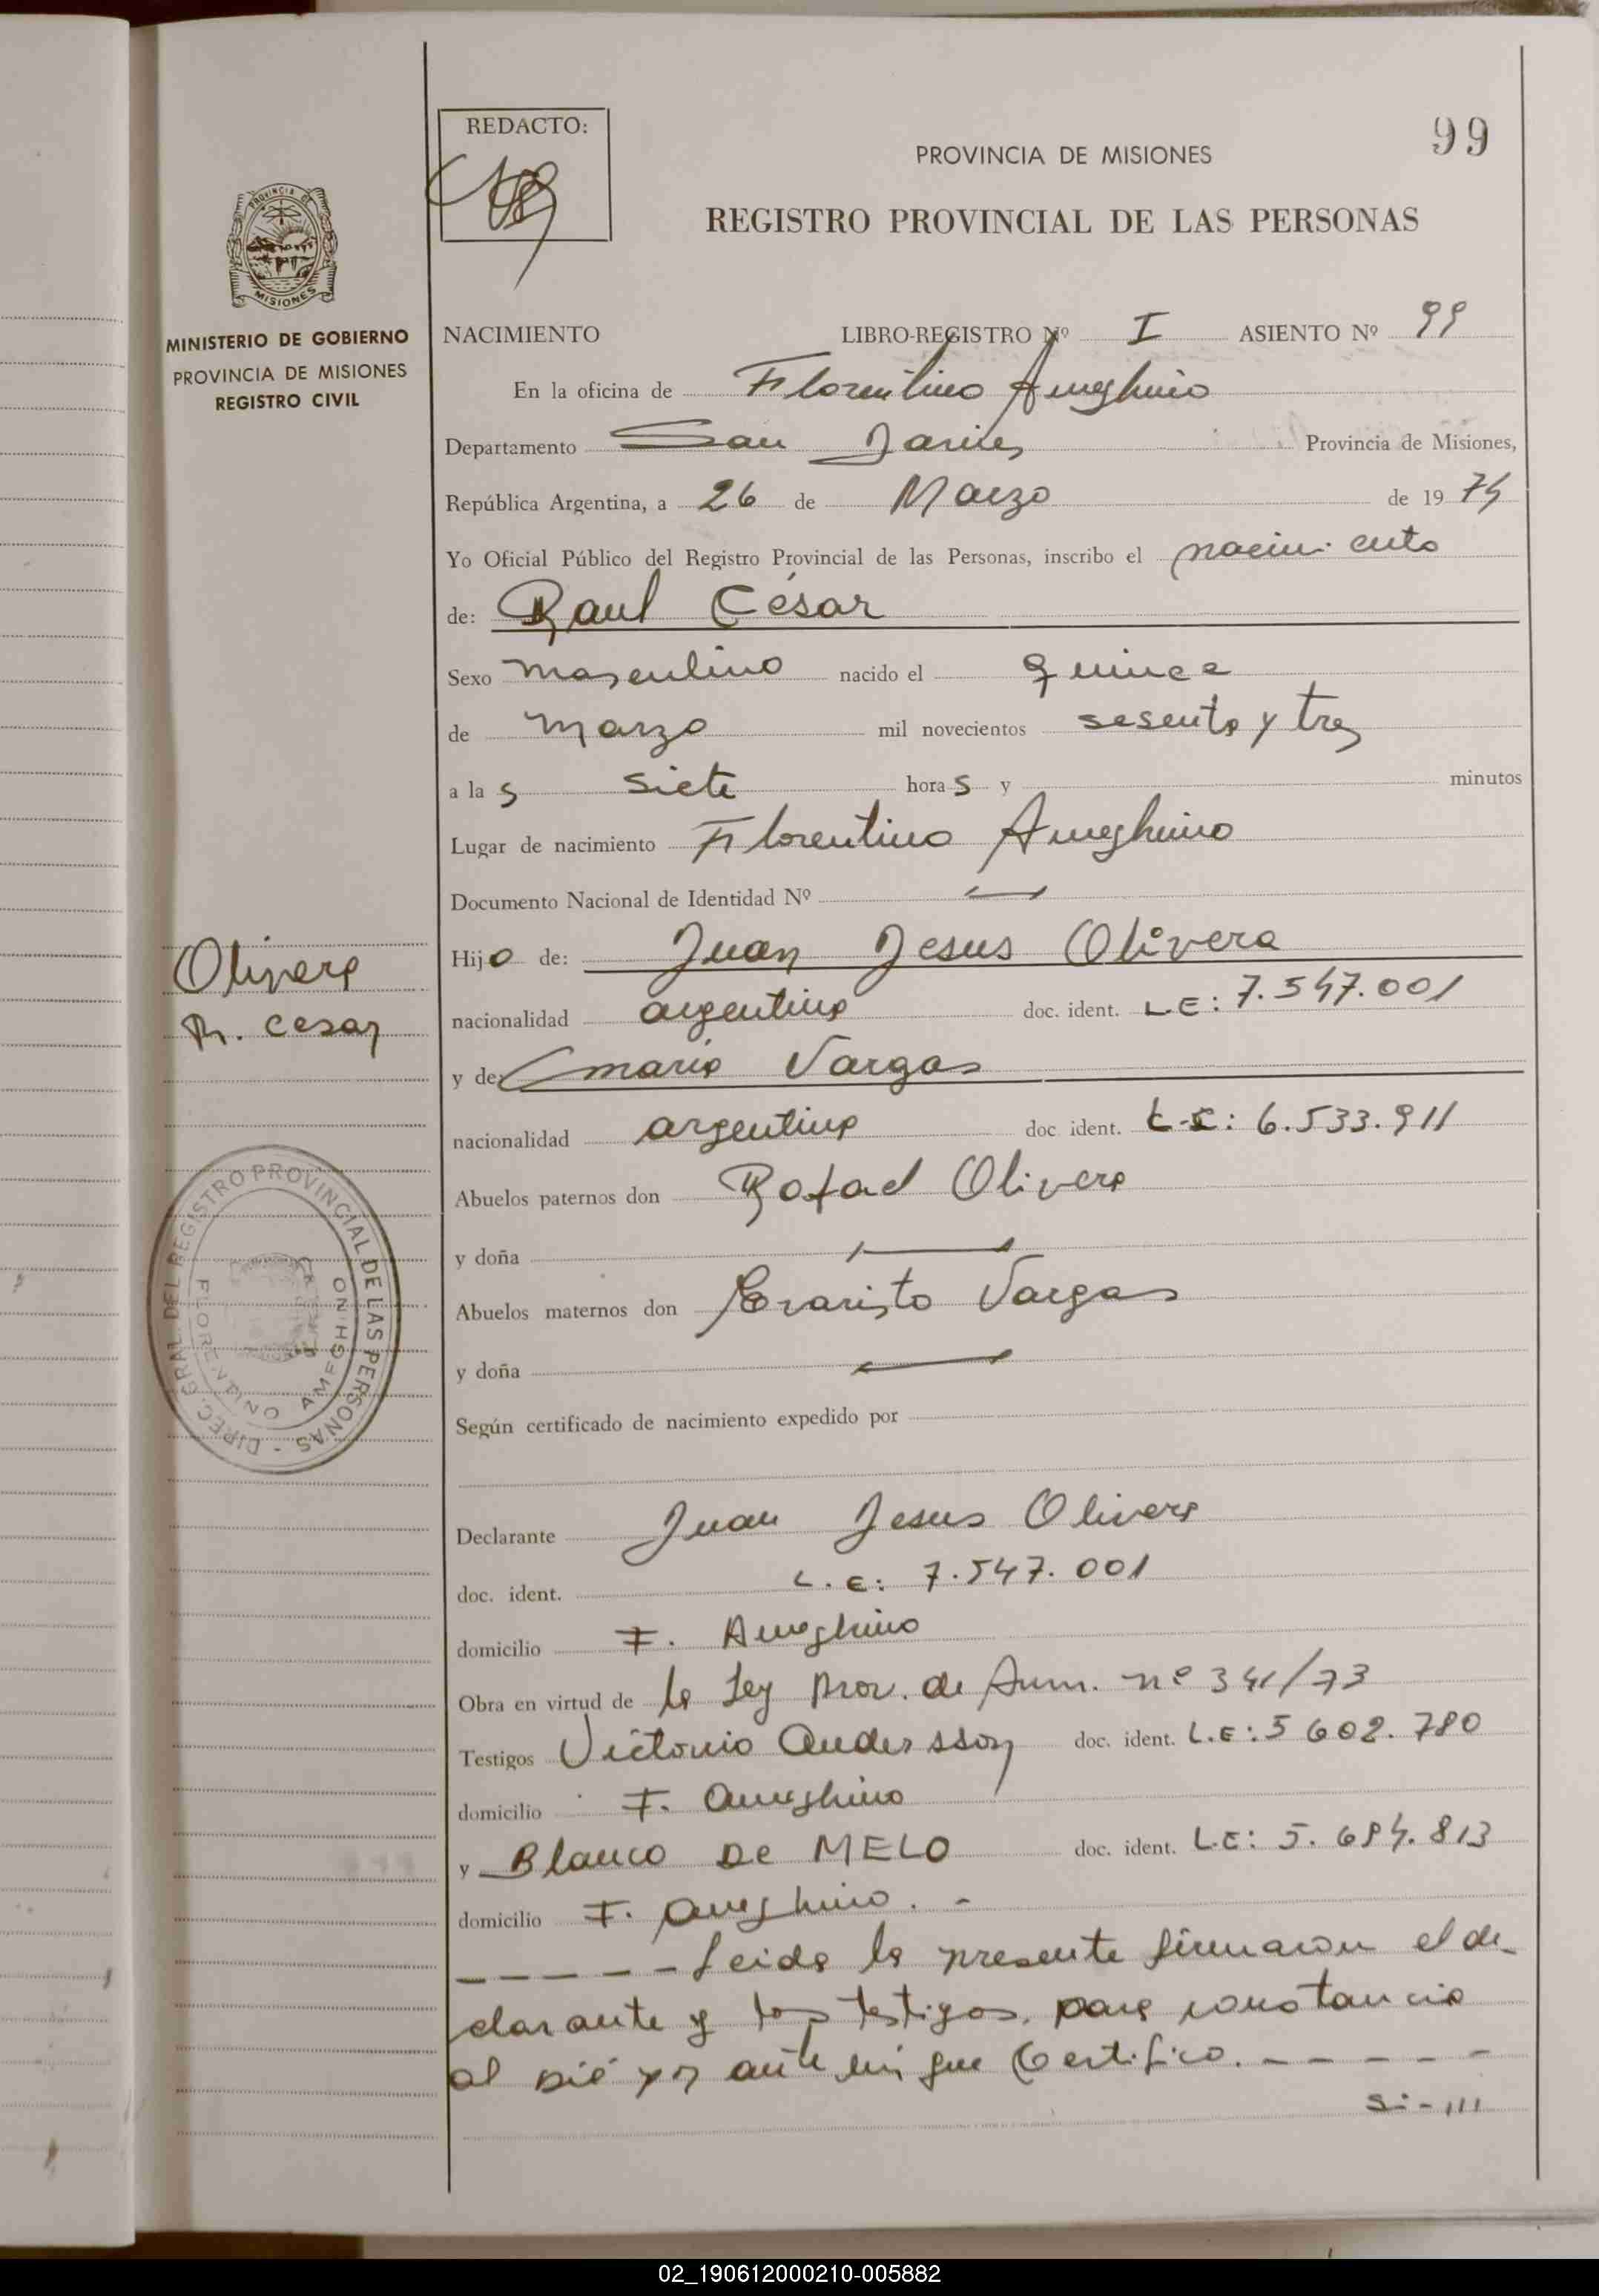 REDACTO:
99
PROVINCIA DE MISIONES
REGISTRO PROVINCIAL DE LAS PERSONAS
PROVINCIA DE
MISIONES
MINISTERIO DE GOBIERNO
PROVINCIA DE MISIONES
REGISTRO CIVIL
NACIMIENTO LIBRO-REGISTRO Nº I ASIENTO Nº 99
En la oficina de Florentino Ameghino
Departamento San Javier Provincia de Misiones,
República Argentina, a 26 de Marzo de 1974
Yo Oficial Público del Registro Provincial de las Personas, inscribo el nacimiento
de: Raul César
Sexo masculino nacido el quince
de marzo mil novecientos sesenta y tres
a las siete horas y minutos
Lugar de nacimiento Florentino Ameghino
Documento Nacional de Identidad Nº —
Hijo de: Juan Jesus Olivera
nacionalidad argentina doc. ident. L.E: 7.547.001
y de: maria Vargas
nacionalidad argentina doc. ident. L.C: 6.533.911
Abuelos paternos don Rafael Olivera
y doña —
Abuelos maternos don Evaristo Vargas
y doña —
Según certificado de nacimiento expedido por
Declarante Juan Jesus Olivera
doc. ident. L.E: 7.547.001
domicilio F. Ameghino
Obra en virtud de la Ley Prov. de Amn. nº 341/73
Testigos Victorio Andersson doc. ident. L.E: 5 602.780
domicilio F. Ameghino
y Blanco De MELO doc. ident. L.E: 5.684.813
domicilio F. Ameghino. -
- - - - - - Leida la presente firmaron el de-
clarante y los testigos, para constancia
al pié y ante mi que Certifico. - - - - -
Si-III
Olivera
R. Cesar
DIREC. GRAL. DEL REGISTRO PROVINCIAL DE LAS PERSONAS -
FLORENTINO AMEGHINO
02_190612000210-005882